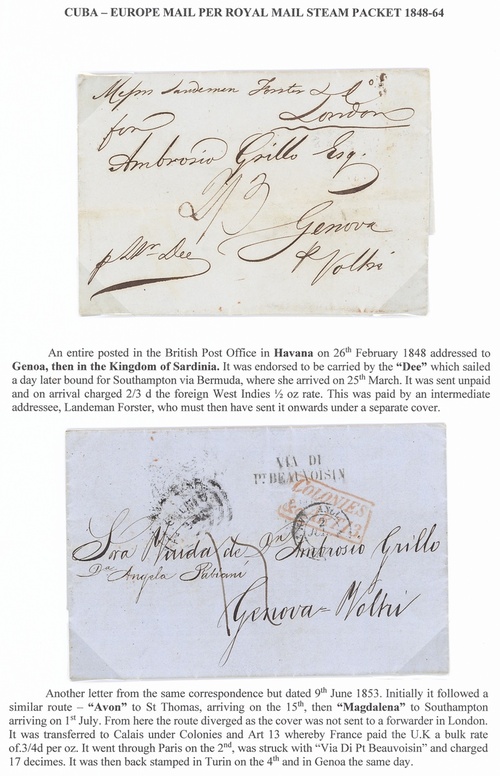 CUBA – EUROPE MAIL PER ROYAL MAIL STEAM PACKET 1848-64
Messrs Sandemen Forster & Co
London
for
Ambrosio Grillo Esq.
2/3
Genova
p Str Dee
p Voltri
An entire posted in the British Post Office in Havana on 26th February 1848 addressed to
Genoa, then in the Kingdom of Sardinia. It was endorsed to be carried by the “Dee” which sailed
a day later bound for Southampton via Bermuda, where she arrived on 25th March. It was sent unpaid
and on arrival charged 2/3 d the foreign West Indies ½ oz rate. This was paid by an intermediate
addressee, Landeman Forster, who must then have sent it onwards under a separate cover.
VIA DI
Pt BEAUVOISIN
COLONIES
& ART. 13.
Sra Viuda de Dn Ambrosio Grillo
Dna Angela Fabiani
17
Genova = Voltri
Another letter from the same correspondence but dated 9th June 1853. Initially it followed a
similar route – “Avon” to St Thomas, arriving on the 15th, then “Magdalena” to Southampton
arriving on 1st July. From here the route diverged as the cover was not sent to a forwarder in London.
It was transferred to Calais under Colonies and Art 13 whereby France paid the U.K a bulk rate
of.3/4d per oz. It went through Paris on the 2nd, was struck with “Via Di Pt Beauvoisin” and charged
17 decimes. It was then back stamped in Turin on the 4th and in Genoa the same day.